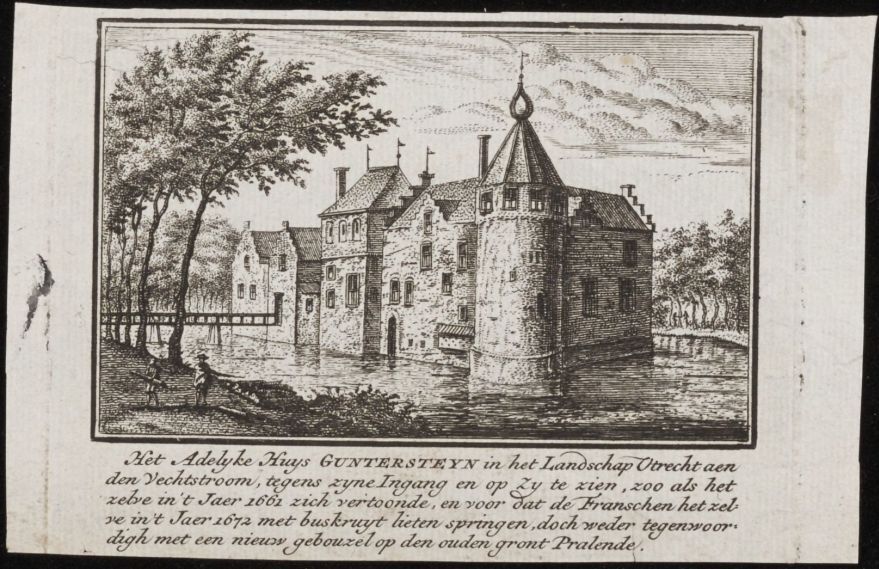 Het Adelyke Huys GUNTERSTEYN in het Landschap Utrecht aen
den Vechtstroom, tegens zyne Ingang en op Zy te zien, zoo als het
zelve in't Jaer 1661 zich vertoonde, en voor dat de Franschen het zel-
ve in't Jaer 1672 met buskruyt lieten springen, doch weder tegenwoor-
digh met een nieuw gebouzel op den ouden gront Pralende.